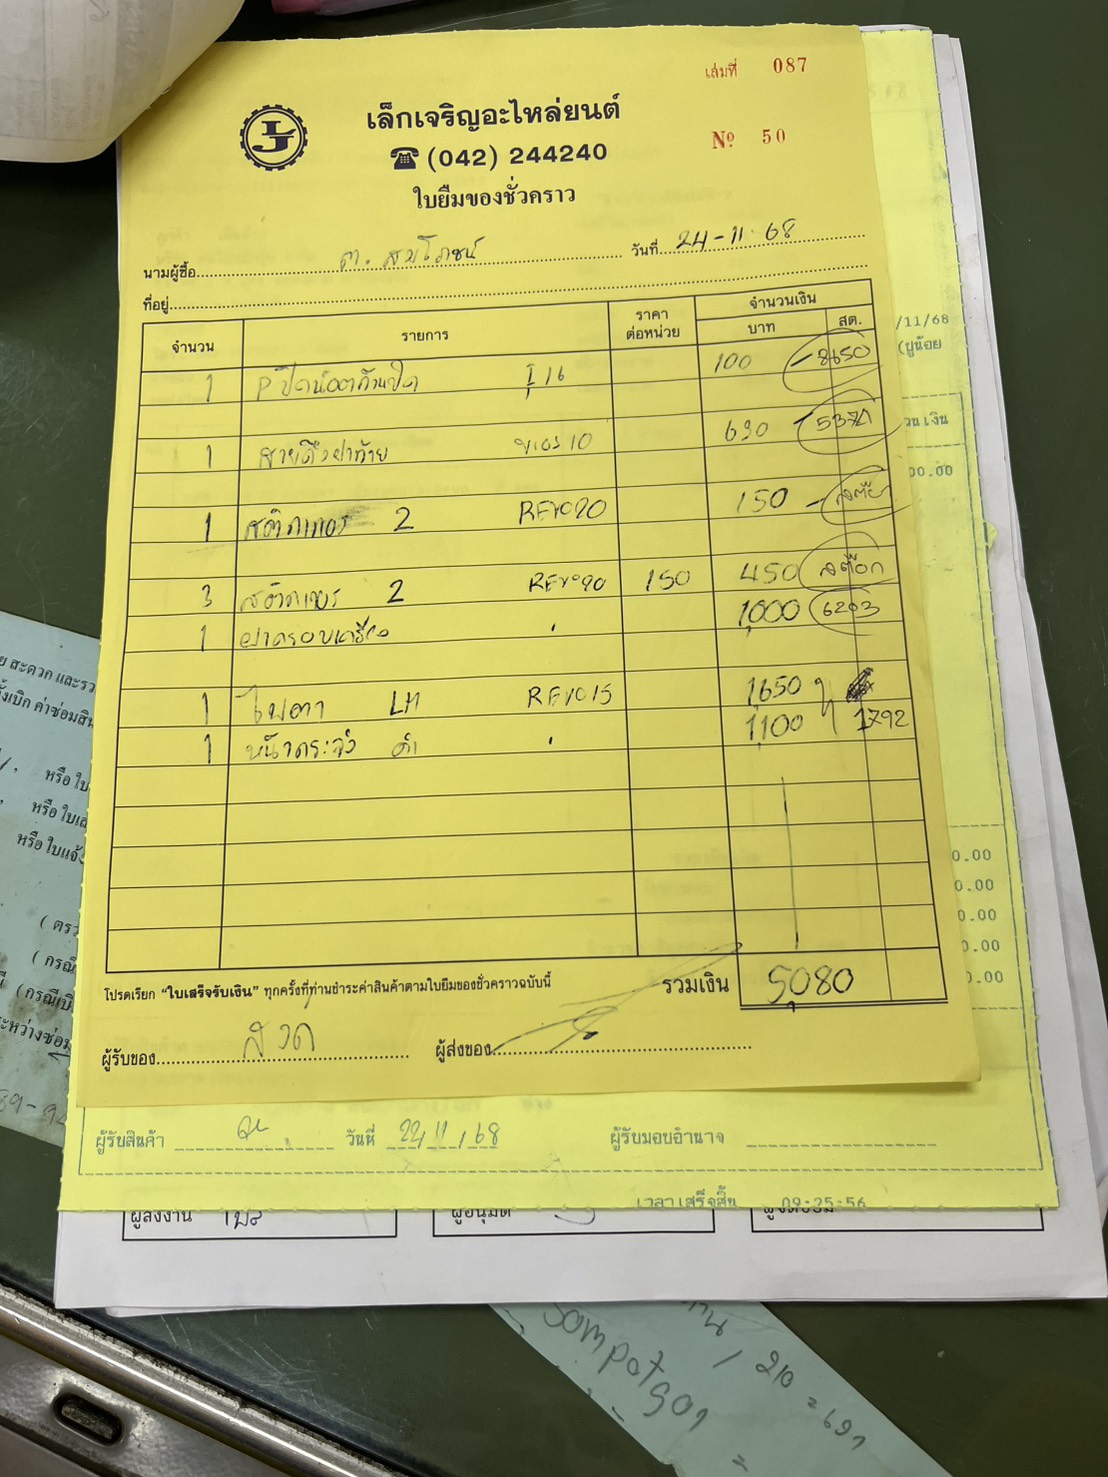 เล่มที่ 087
LJ
เล็กเจริญอะไหล่ยนต์
☎ (042) 244240
Nº 50
ใบยืมของชั่วคราว
นามผู้ซื้อ ต. สมโภชน์ วันที่ 24-11-68
ที่อยู่
จำนวน รายการ ราคาต่อหน่วย จำนวนเงิน
บาท สต.
1 I 16 100 - 8650
1 สายดึงฝาท้าย 10 690 - 5371
1 สติกเกอร์ 2 REVO20 150 -
3 สติกเกอร์ 2 REVO20 150 450 สต๊อก
1 ฝาครอบ 1,000 6203
1 ไฟตา LH REVO15 1,650
1 หน้ากระจัง ดำ 1,100 1792
โปรดเรียก “ใบเสร็จรับเงิน” ทุกครั้งที่ท่านชำระค่าสินค้าตามใบยืมของชั่วคราวฉบับนี้ รวมเงิน 5,080
ผู้รับของ ผู้ส่งของ
/11/68
(ปูน้อย
เงิน
00.00
0.00
0.00
0.00
0.00
0.00
ย สะดวก และรว
ค่าซ่อมสิน
หรือ ใบ
หรือ ใบเส
หรือ ใบแจ้ง
( ตรว
( กรณี
(กรณีเบิ
ระหว่างซ่อม
ผู้รับสินค้า วันที่ 22/11/68 ผู้รับมอบอำนาจ
เวลาเสร็จสิ้น 09:25:56
ผู้สั่งงาน ผู้อนุมัติ
Sompot
/ 210 = 691